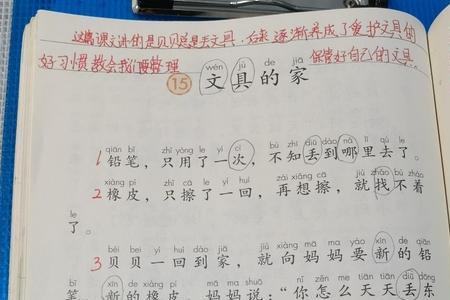 这篇课文讲的是贝贝总是丢文具,后来逐渐养成了爱护文具的
好习惯教会我们要管理 保管好自己的文具
wén jù de jiā
15 文具的家
qiān bǐ zhǐ yòng le yí cì bù zhī diū dào nǎ lǐ qù le
1 铅笔,只用了一次,不知丢到哪里去了。
xiàng pí zhǐ cā le yì huí zài xiǎng cā jiù zhǎo bù zháo
2 橡皮,只擦了一回,再想擦,就找不着
le
了。
bèi bei yì huí dào jiā jiù xiàng mā ma yào xīn de qiān
3 贝贝一回到家,就向妈妈要新的铅
bǐ xīn de xiàng pí mā ma shuō nǐ zěn me tiān tiān diū dōng
笔,新的橡皮。妈妈说:“你怎么天天丢东